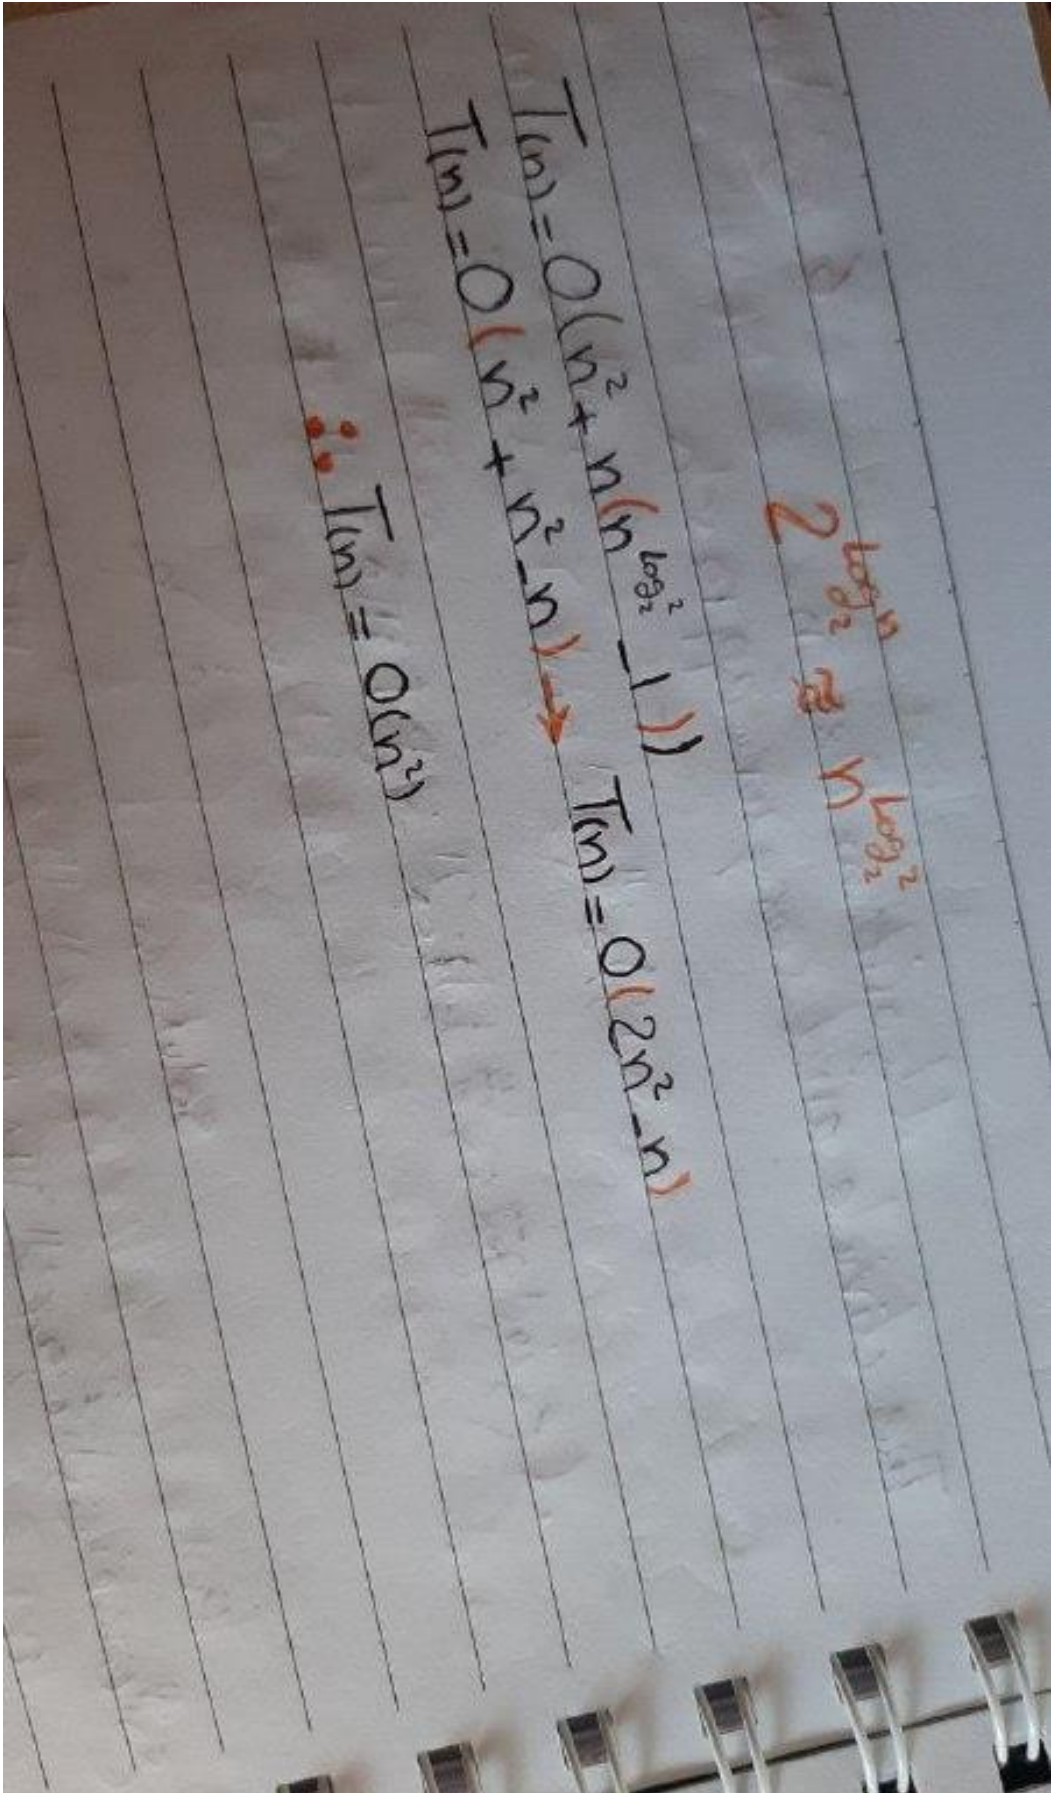 2^{log_2 n} ≡ n^{log_2 2}
T(n) = O(n² + n(n^{log_2 2} - 1))
T(n) = O(n² + n² - n) → T(n) = O(2n² - n)
∴ T(n) = O(n²)